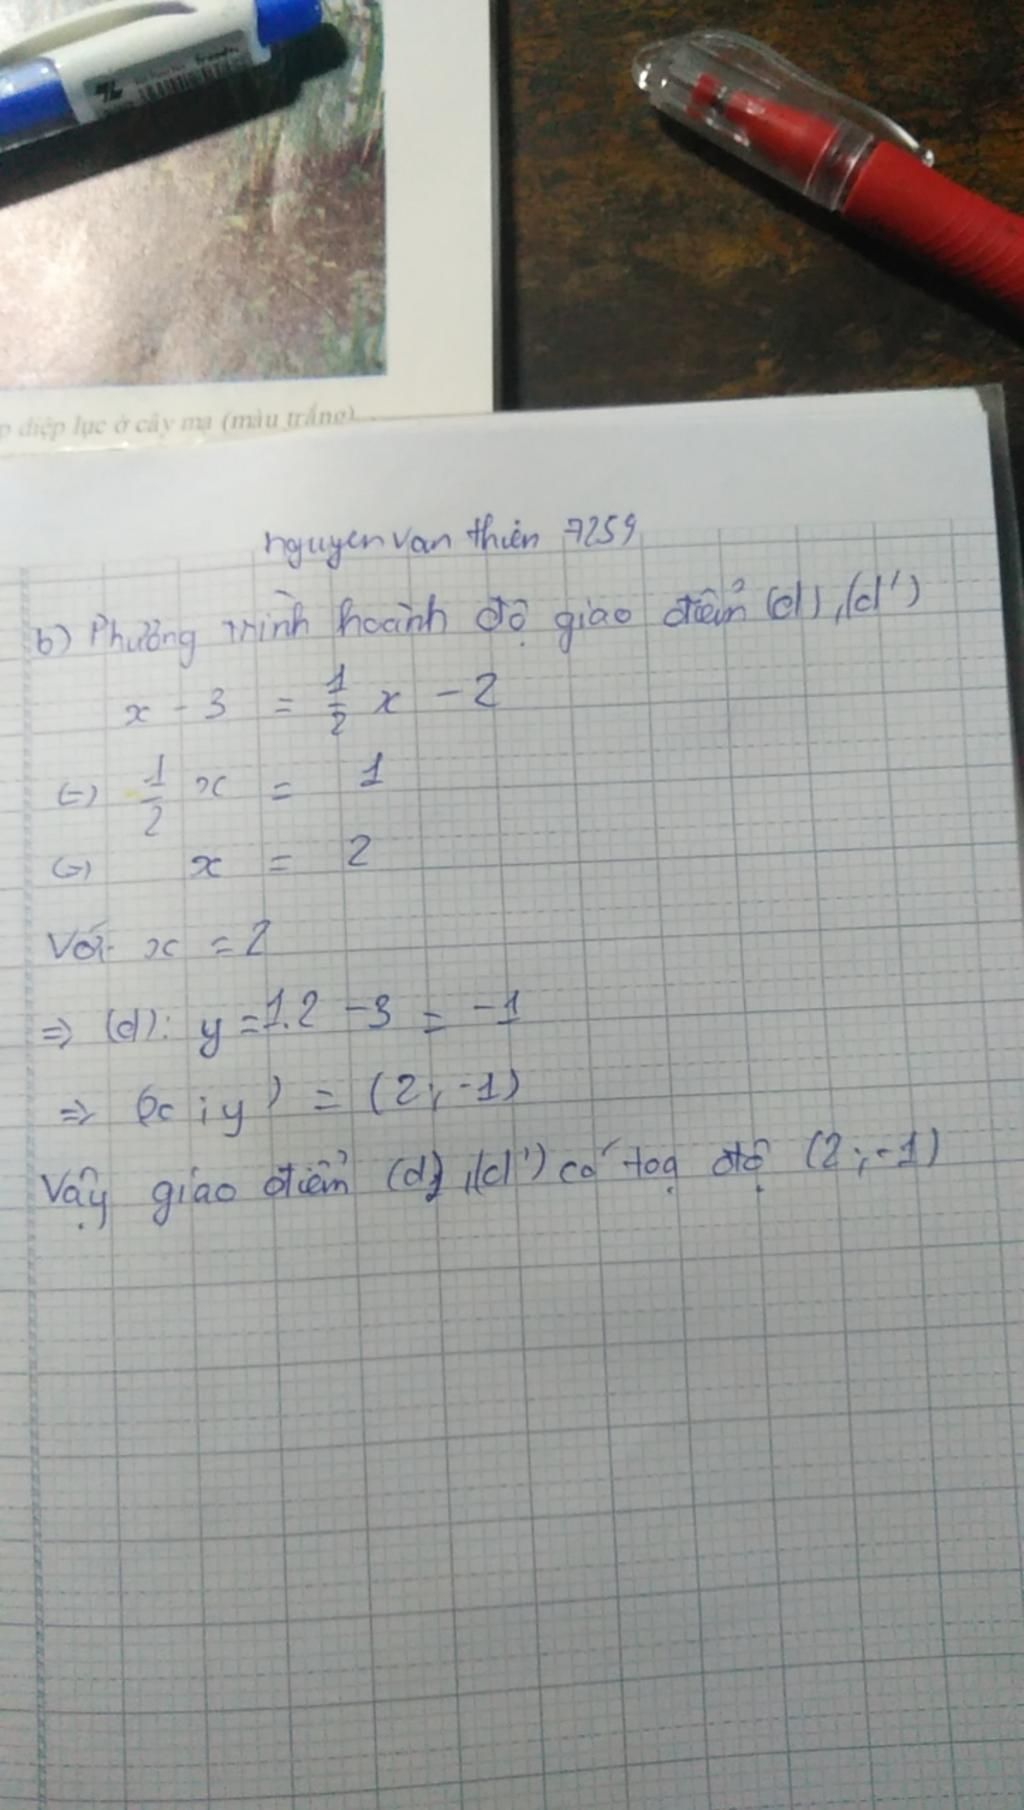 p diệp lục ở cây mạ (màu trắng)
nguyen van thien 7259
b) Phương trình hoành độ giao điểm (d), (d')
x - 3 = 1/2 x - 2
(=) 1/2 x = 1
(=) x = 2
Với x = 2
=> (d): y = 1.2 - 3 = -1
=> (x ; y) = (2 ; -1)
Vậy giao điểm (d), (d') có toạ độ (2 ; -1)